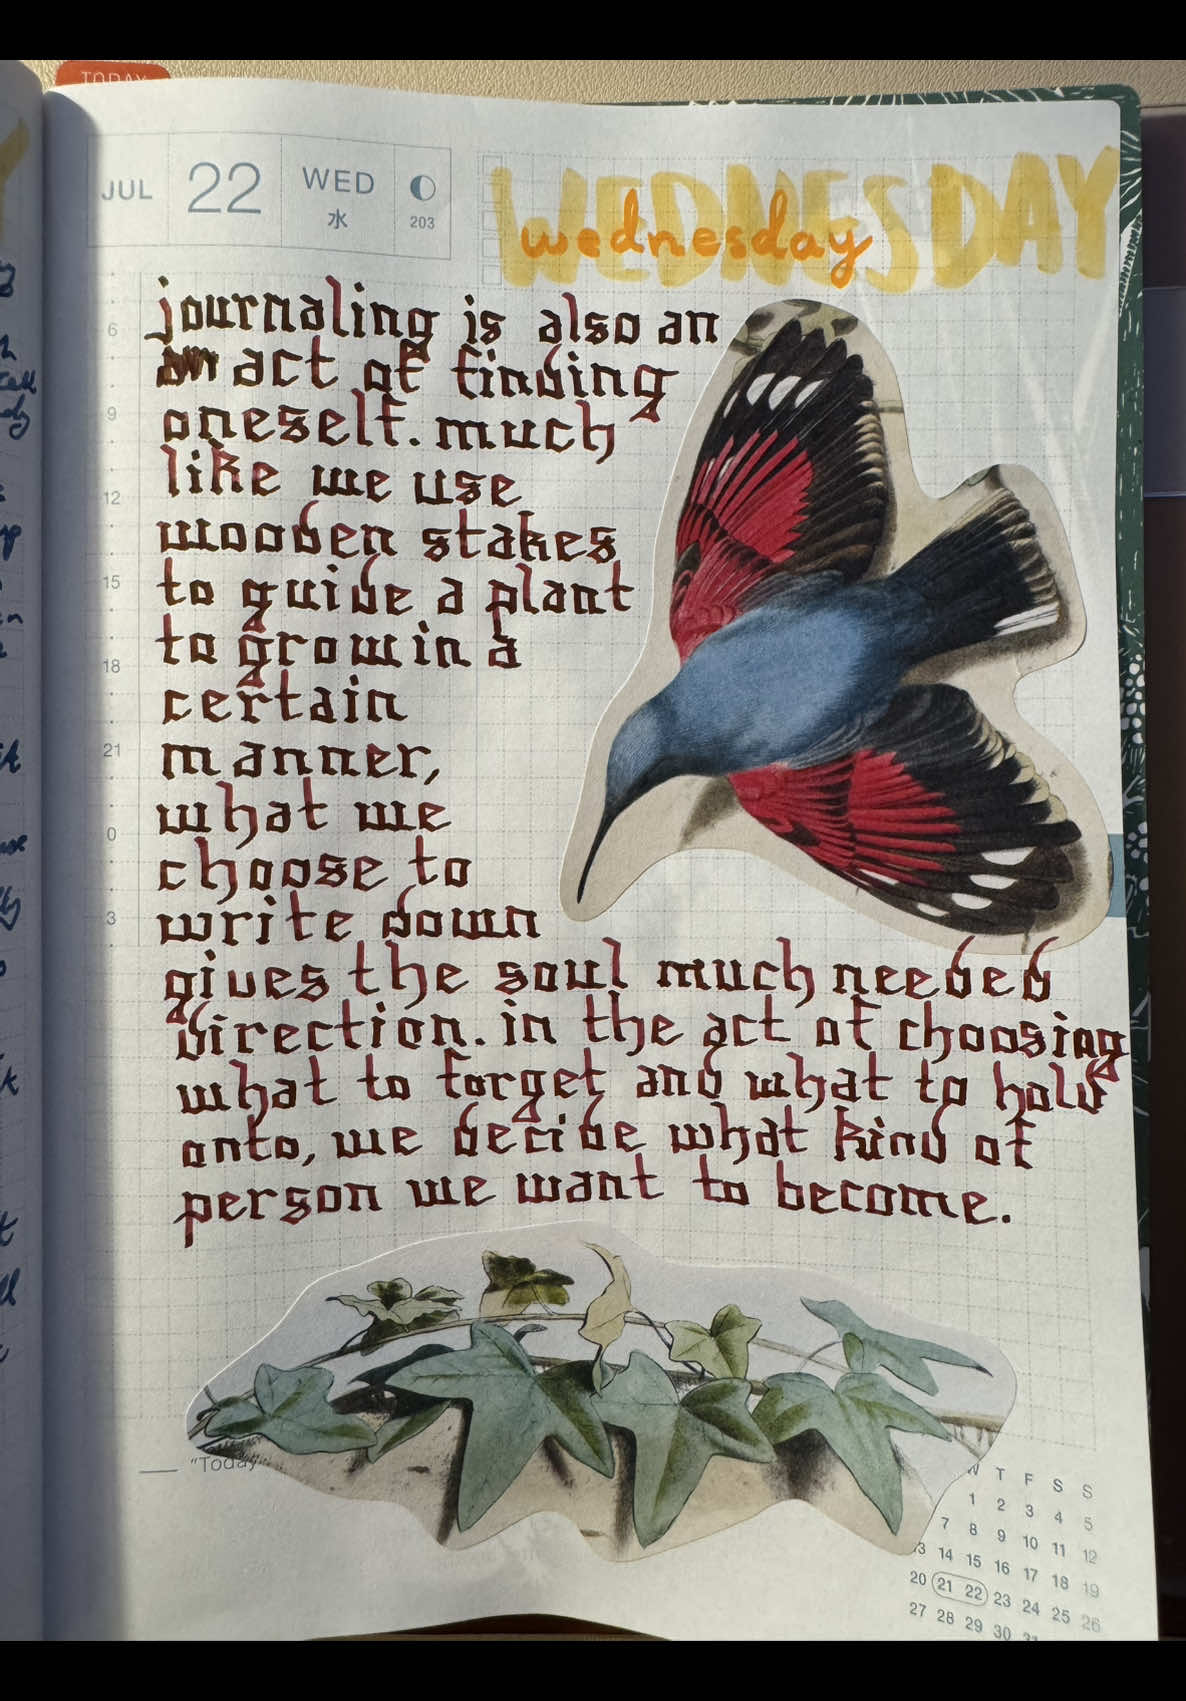 TODAY
JUL 22 WED 水 203
WEDNESDAY
wednesday
journaling is also an
act of finding
oneself. much
like we use
wooden stakes
to guide a plant
to grow in a
certain
manner,
what we
choose to
write down
gives the soul much needed
direction. in the act of choosing
what to forget and what to hold
onto, we decide what kind of
person we want to become.
6
9
12
15
18
21
0
3
"Today
W T F S S
1 2 3 4 5
7 8 9 10 11 12
13 14 15 16 17 18 19
20 21 22 23 24 25 26
27 28 29 30 31